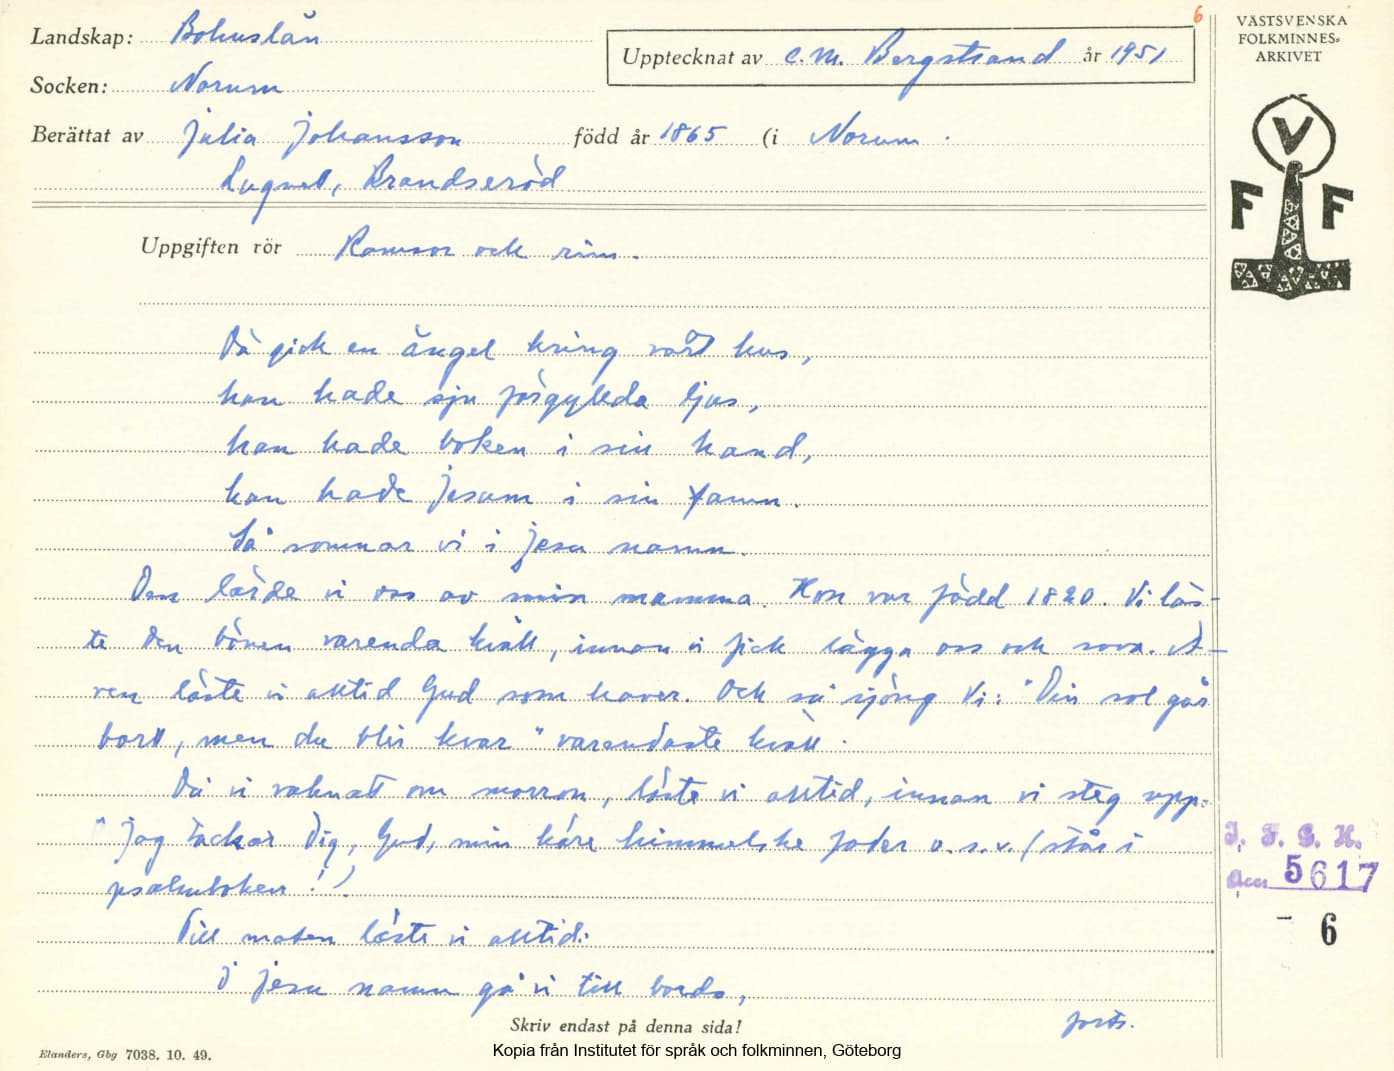 6
Landskap: Bohuslän
Upptecknat av C. M. Bergstrand år 1951
Socken: Norum
Berättat av Julia Johansson född år 1865 (i Norum.
Lugnet, Brandseröd
VÄSTSVENSKA
FOLKMINNES-
ARKIVET
V
F F
Uppgiften rör Ramsor och rim.
Då gick en ängel kring vårt hus,
han hade sju förgyllda ljus,
han hade boken i sin hand,
han hade Jesum i sin famn.
Så somnar vi i Jesu namn.
Den lärde vi oss av min mamma. Hon var född 1820. Vi läs-
te den bönen varenda kväll, innan vi fick lägga oss och sova. Ä-
ven läste vi alltid Gud som haver. Och så sjöng vi: "Din sol går
bort, men du blir kvar" varendaste kväll.
Då vi vaknatt om morron, läste vi alltid, innan vi steg upp:
"Jag tackar Dig, Gud, min käre himmelske fader o.s.v. (står i
psalmboken!)
Till maten läste vi alltid:
I Jesu namn gå vi till bords,
forts.
I. F. G. H.
Acc. 5617
- 6
Skriv endast på denna sida!
Elanders, Gbg 7038. 10. 49.
Kopia från Institutet för språk och folkminnen, Göteborg